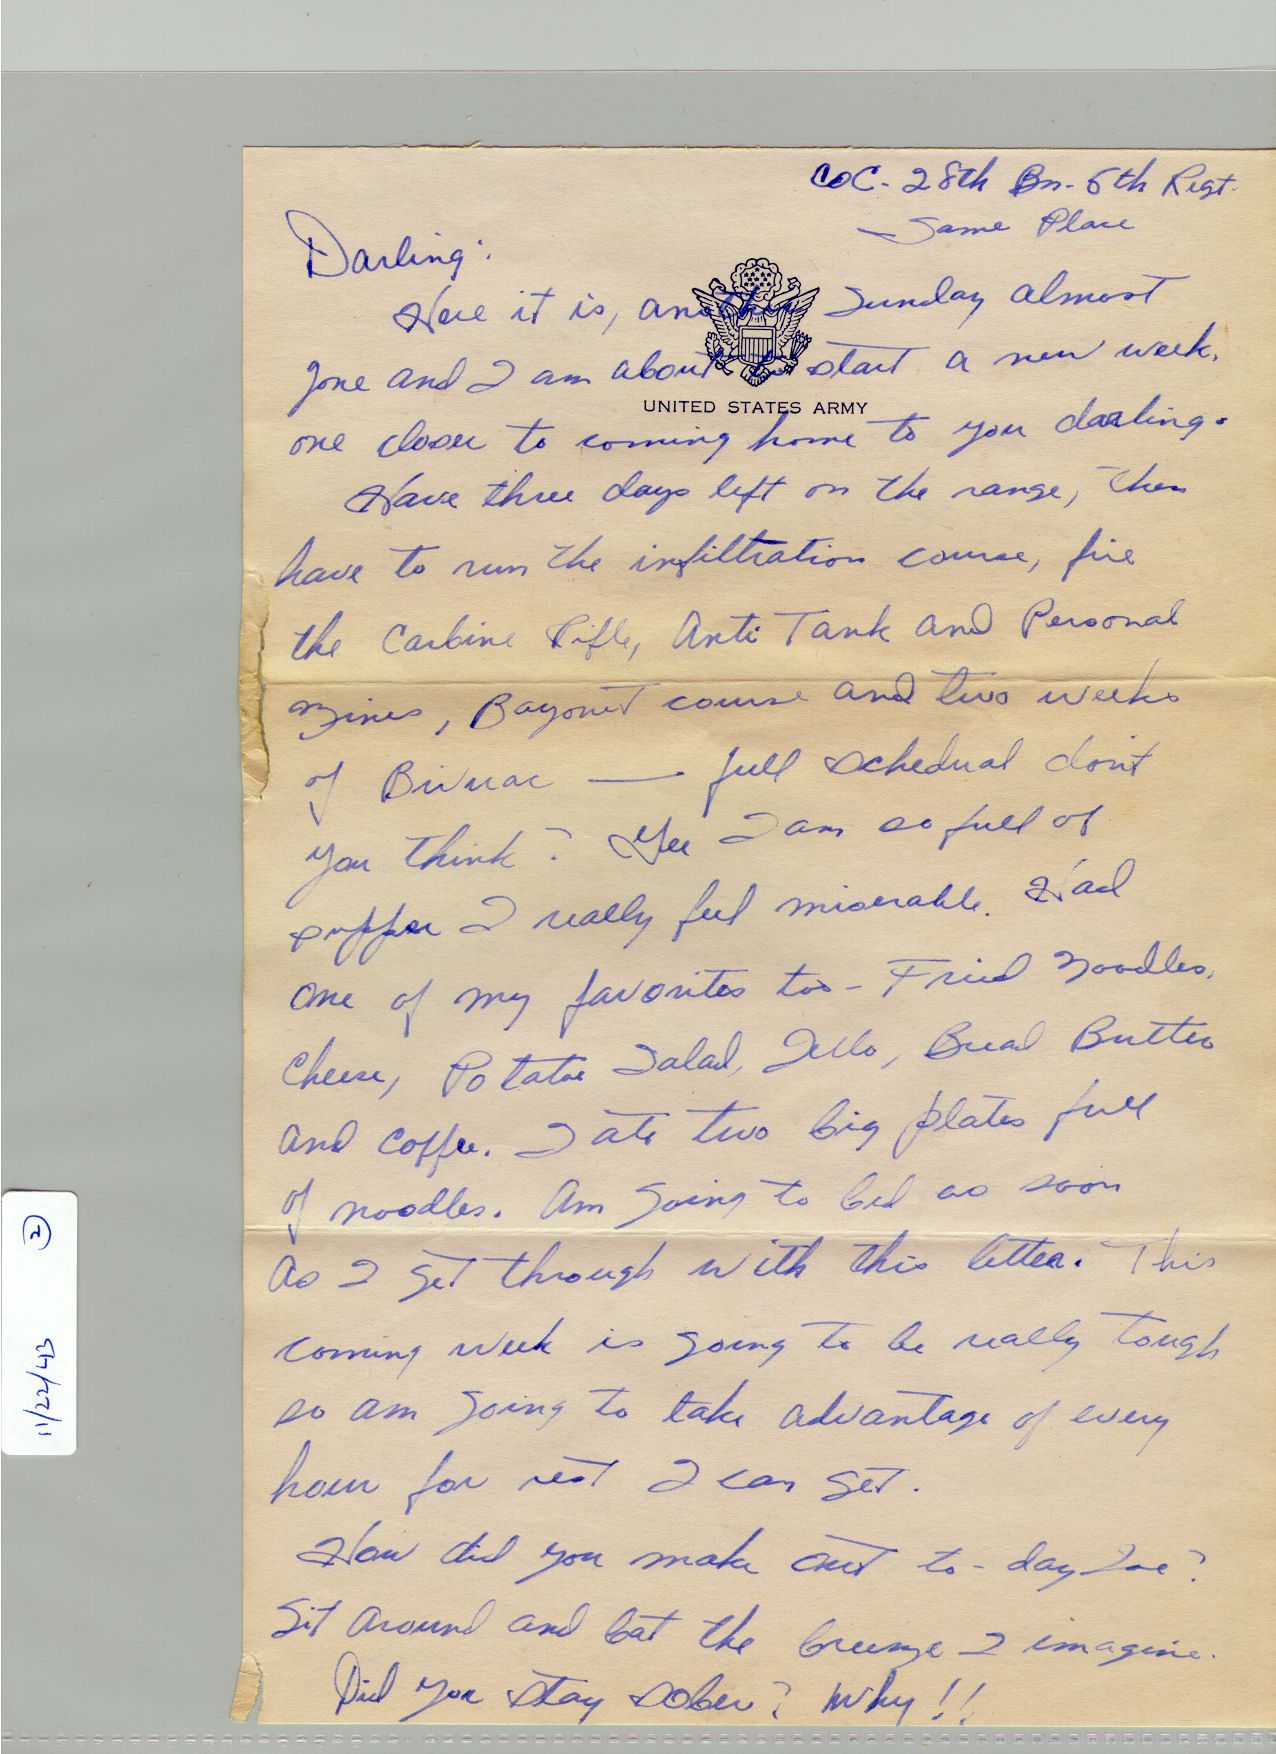 CoC - 28th Bn - 6th Regt.
Same Place
Darling:
Here it is, another Sunday almost
gone and I am about to start a new week,
UNITED STATES ARMY
one closer to coming home to you darling.
Have three days left on the range, then
have to run the infiltration course, fire
the Carbine Rifle, Anti Tank and Personal
Mines, Bayonet course and two weeks
of Bivuac — full schedual don't
you think? Gee I am so full of
supper I really feel miserable. Had
one of my favorites too - Fried Noodles,
Cheese, Potatoe Salad, Jello, Bread Butter
and Coffee. I ate two big plates full
of noodles. Am going to bed as soon
as I get through with this letter. This
coming week is going to be really tough
so am going to take advantage of every
hour for rest I can get.
How did you make out to-day?
Sit around and bat the breeze I imagine.
Did you stay sober? Why!!
11/22/43 2